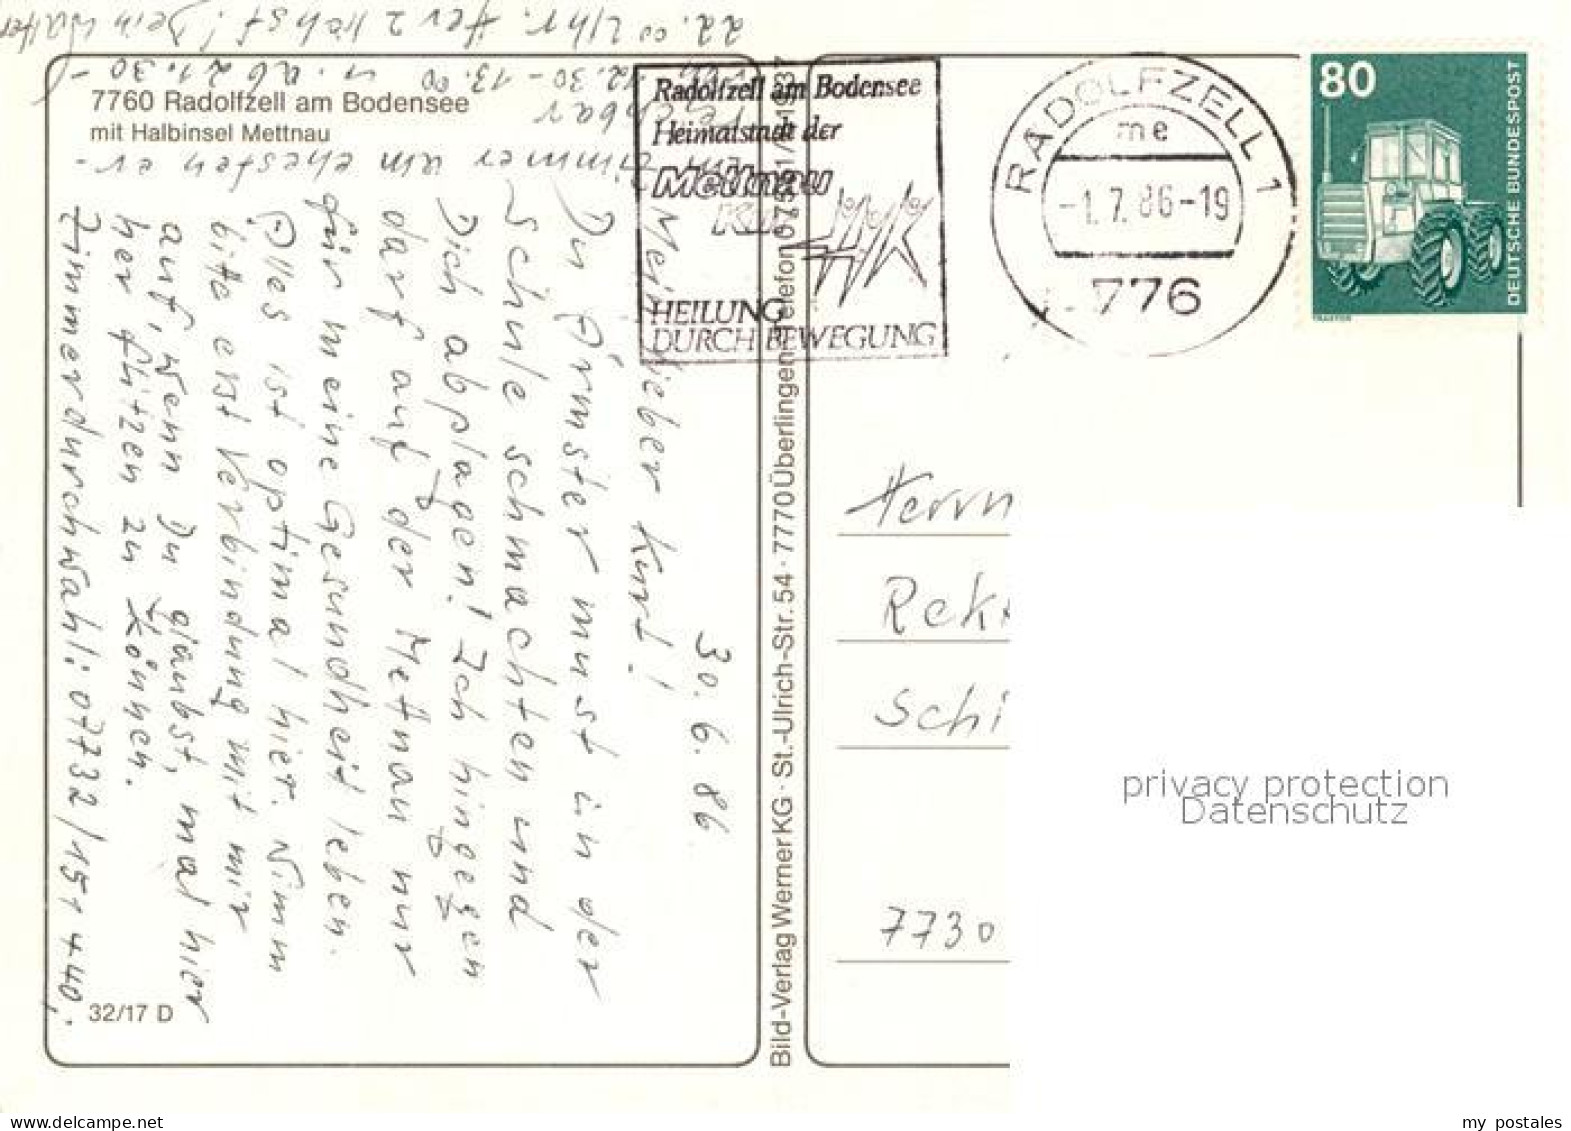 7760 Radolfzell am Bodensee
mit Halbinsel Mettnau
30.6.86
Mein lieber Kurt!
Du Ärmster must in der
Schule schmachten und
Dich abplagen! Ich hingegen
darf auf der Mettnau nur
für meine Gesundheit leben.
Alles ist optimal hier. Nimm
bitte erst Verbindung mit mir
auf, wenn Du glaubst, mal hier
her flitzen zu können.
Zimmerdurchwahl: 07732/151 + 40,
Zimmer am ehesten er-
reichbar
12.30 - 13.00 u. ab 21.30 -
22.00 Uhr. Dein Walter
32/17 D
Bild-Verlag Werner KG · St.-Ulrich-Str. 54 · 7770 Überlingen · Telefon 07551/
Radolfzell am Bodensee
Heimatstadt der
Mettnau
KUR
HEILUNG
DURCH BEWEGUNG
RADOLFZELL 1
me
-1.7.86-19
776
80
DEUTSCHE BUNDESPOST
TRAKTOR
Herrn
Rek
Schi
7730
privacy protection
Datenschutz
www.delcampe.net
my_postales